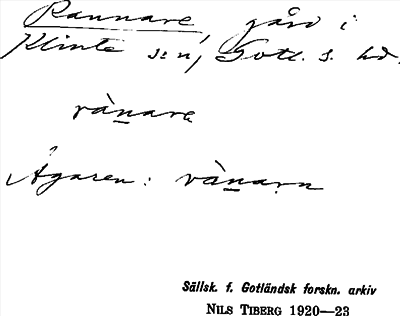 Rannare, gård i
Klinte s:n, Gotl. s. hd.
rànare
Ägaren: rànarn
Sällsk. f. Gotländsk forskn. arkiv
NILS TIBERG 1920—23